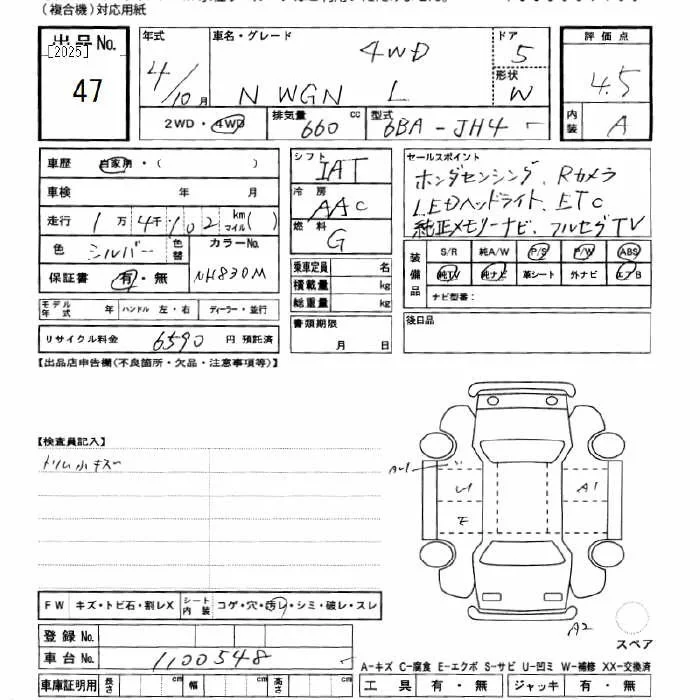 (複合機)対応用紙
出品No.
[2025]
47
年式
4/10月
車名・グレード
4WD
N WGN L
ドア
5
形状
W
2WD・4WD
排気量
660 cc
型式
6BA-JH4
評価点
4.5
内装
A
車歴
自家用・( )
車検 年 月
走行
1万4千102 km マイル( )
色
シルバー
色替
カラーNo.
NH830M
保証書
有・無
モデル年式 年
ハンドル 左・右
ディーラー・並行
リサイクル料金
6590 円 預託済
シフト
IAT
冷房
AAC
燃料
G
乗車定員 名
積載量 kg
総重量 kg
書類期限
月 日
セールスポイント
ホンダセンシング、Rカメラ
LEDヘッドライト、ETC
純正メモリーナビ、フルセグTV
装備品
S/R 純A/W P/S P/W ABS
純TV 純ナビ 革シート 外ナビ エアB
ナビ型番:
後日品
【出品店申告欄(不良箇所・欠品・注意事項等)】
【検査員記入】
トリム小キズ
A1
U1
E
A1
A2
スペア
FW
キズ・トビ石・割レX
シート内装
コゲ・穴・汚レ・シミ・破レ・スレ
登録No.
車台No.
1100548
車庫証明用
長さ cm
幅 cm
高さ cm
A-キズ C-腐食 E-エクボ S-サビ U-凹ミ W-補修 XX-交換済
工具 有・無
ジャッキ 有・無